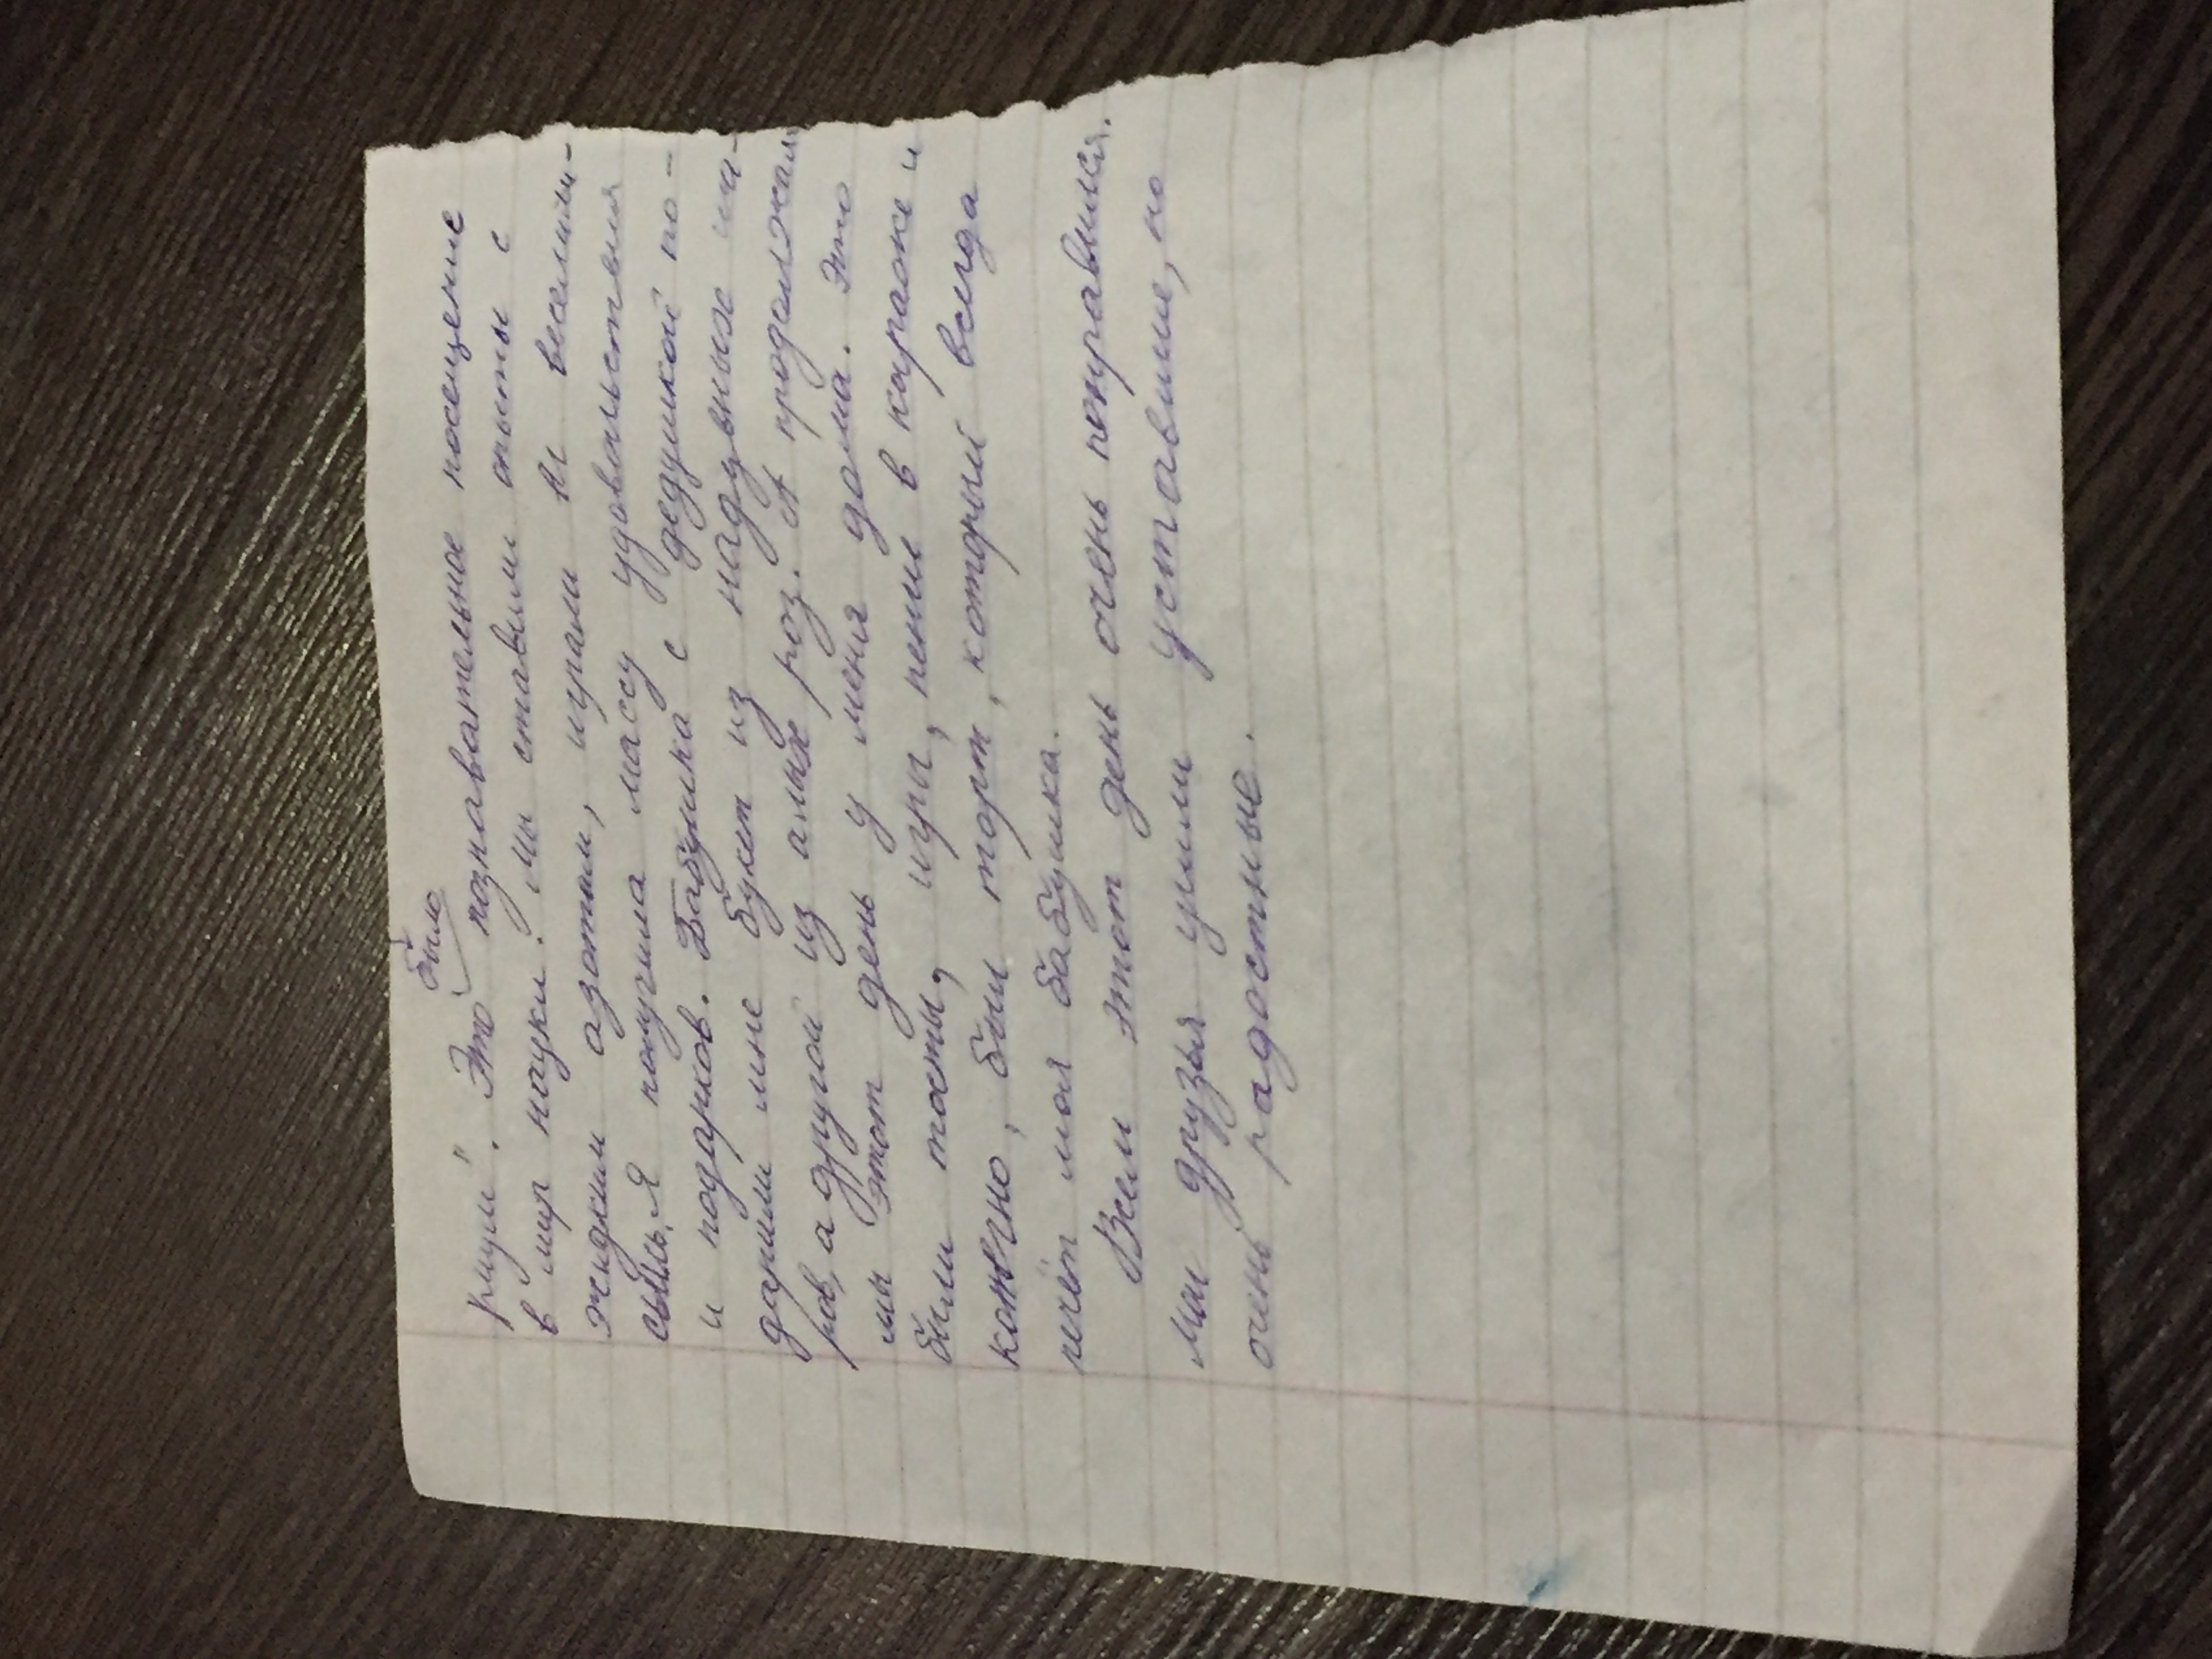 было
риум". Это познавательное посещение
в мир науки. Мы ставили опыты с
жидким азотом, играли и веселили-
сь. Я получила массу удовольствия
и подарков. Бабушка с дедушкой по-
дарили мне букет из надувных ша-
ров, а другой из алых роз. А продолжали
мы этот день у меня дома. Это
были тосты, игры, пение в караоке и
конечно, был торт, который всегда
печёт моя бабушка.
Всем этот день очень понравился.
Мои друзья ушли уставшие, но
очень радостные.